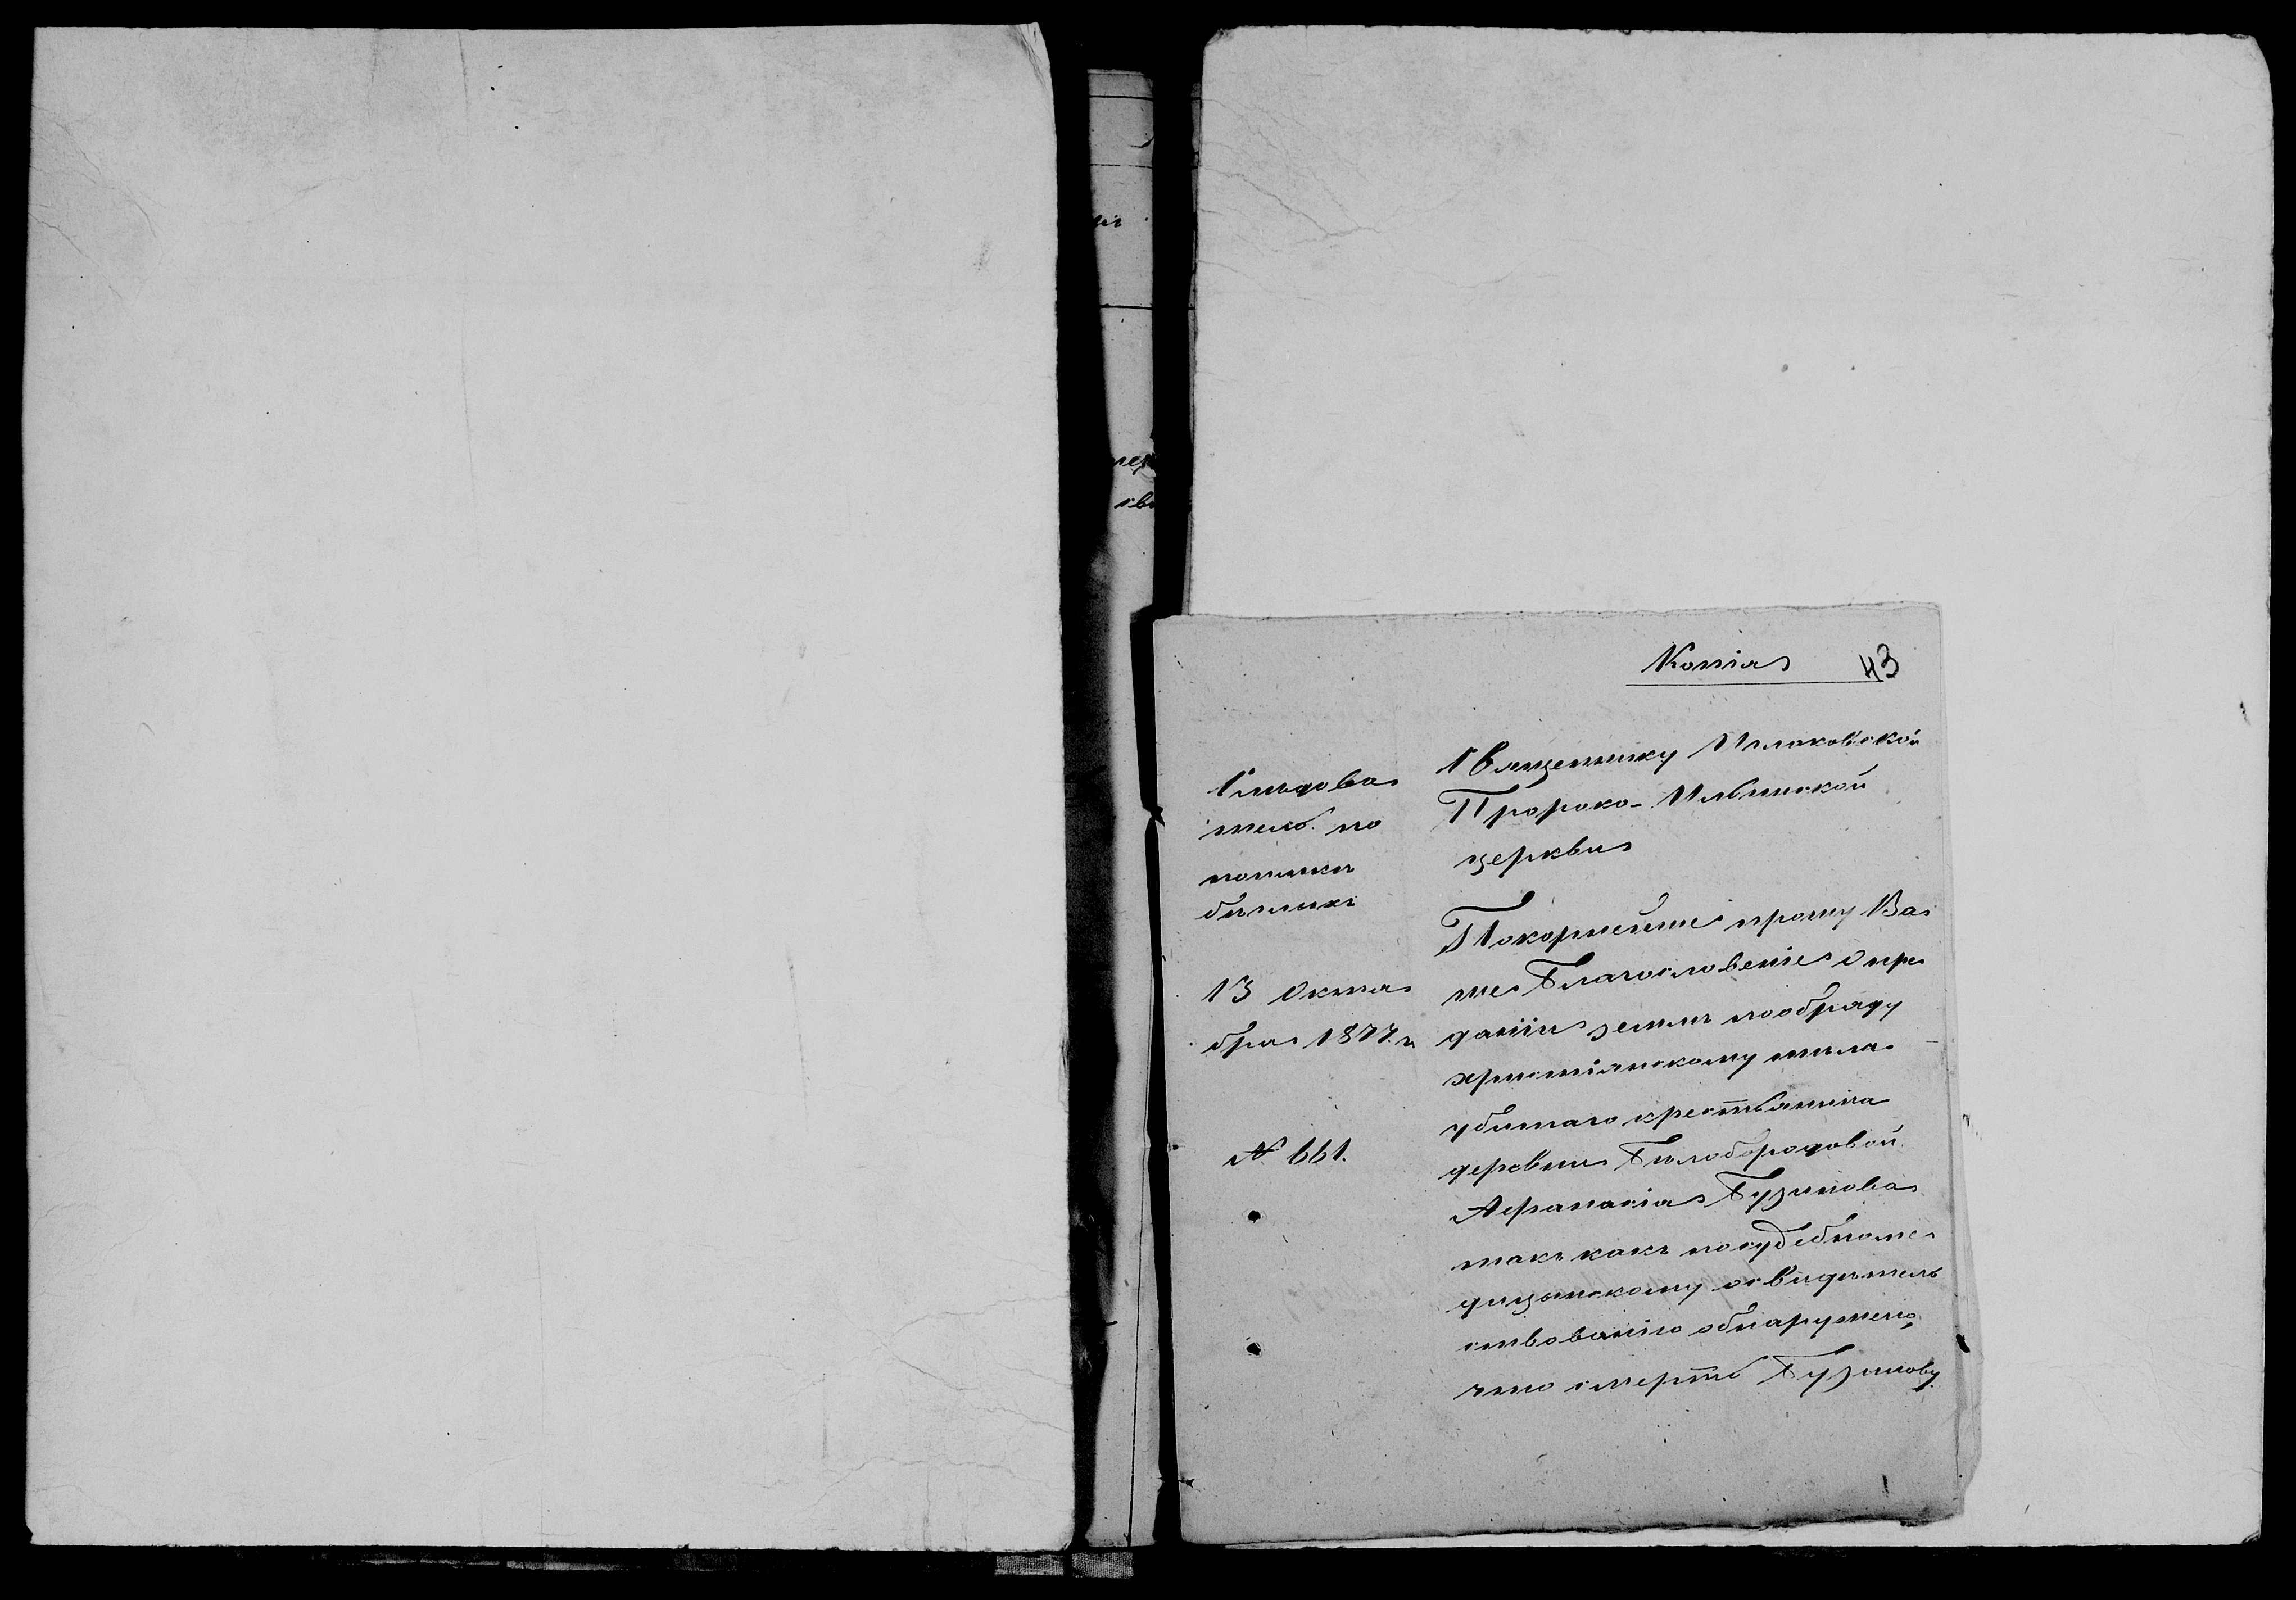 Копія 43
Слѣдова
тель по
полити
бѣглыхъ
13 Октя
бря 1877. г
№ 661.
Священнику Исаковской
Пророко-Ильинской
церкви
Покорнейше прошу Ва
ше Благословеніе о пре
даніи землѣ по обряду
христіянскому тѣла
убитаго крестьянина
деревни Бѣлобородовой
Афанасія Бузинова
такъ какъ по судебноме
дицынскому освидѣтель
ствованію обнаружено,
что смерть Бузинову